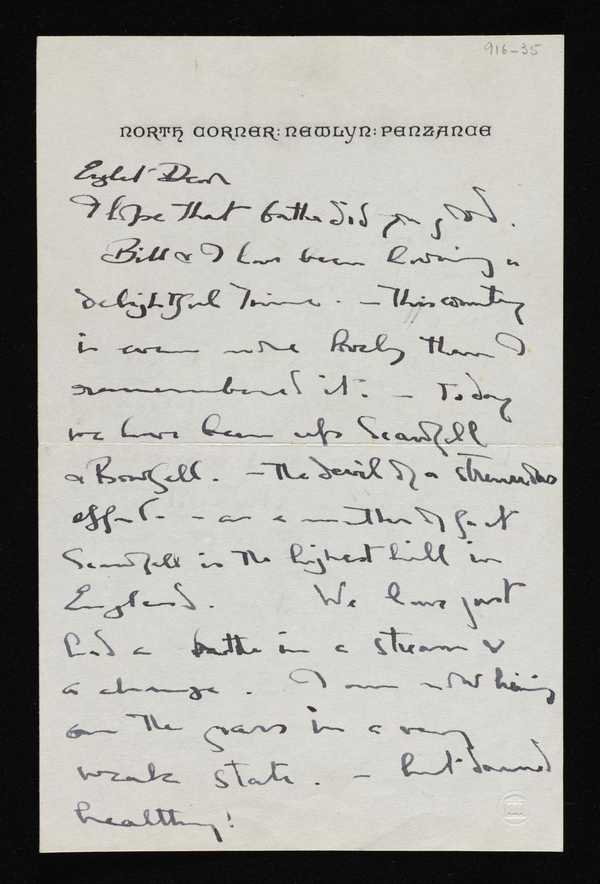 916-35
NORTH CORNER: NEWLYN: PENZANCE
Dear
I hope that bathe did you good.
Bill & I have been having a
delightful time. — This country
is even more lovely than I
remembered it. — Today
we have been up Scawfell
& Bowfell. — The devil of a strenuous
effort. — as a matter of fact
Scawfell is the highest hill in
England. We have just
had a bathe in a stream &
a change. I am now lying
on the grass in a very
weak state. — but damned
healthy!